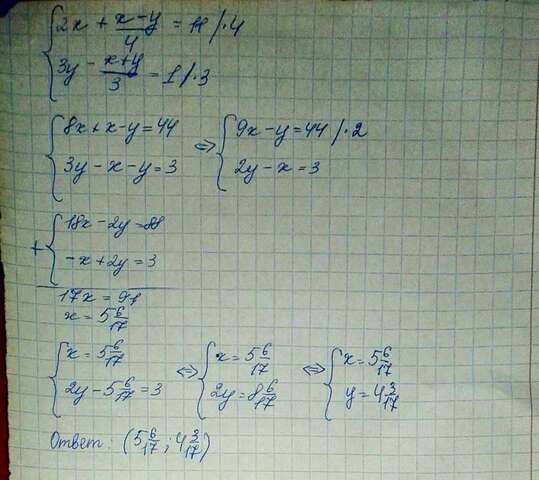 2x + (x-y)/4 = 11 /·4
3y - (x+y)/3 = 1 /·3
8x+x-y=44 <=> 9x-y=44 /·2
3y-x-y=3 2y-x=3
18x-2y=88
+
-x+2y=3
17x=91
x=5 6/17
x=5 6/17 <=> x=5 6/17 <=> x=5 6/17
2y-5 6/17=3 2y=8 6/17 y=4 3/17
Ответ: (5 6/17; 4 3/17)